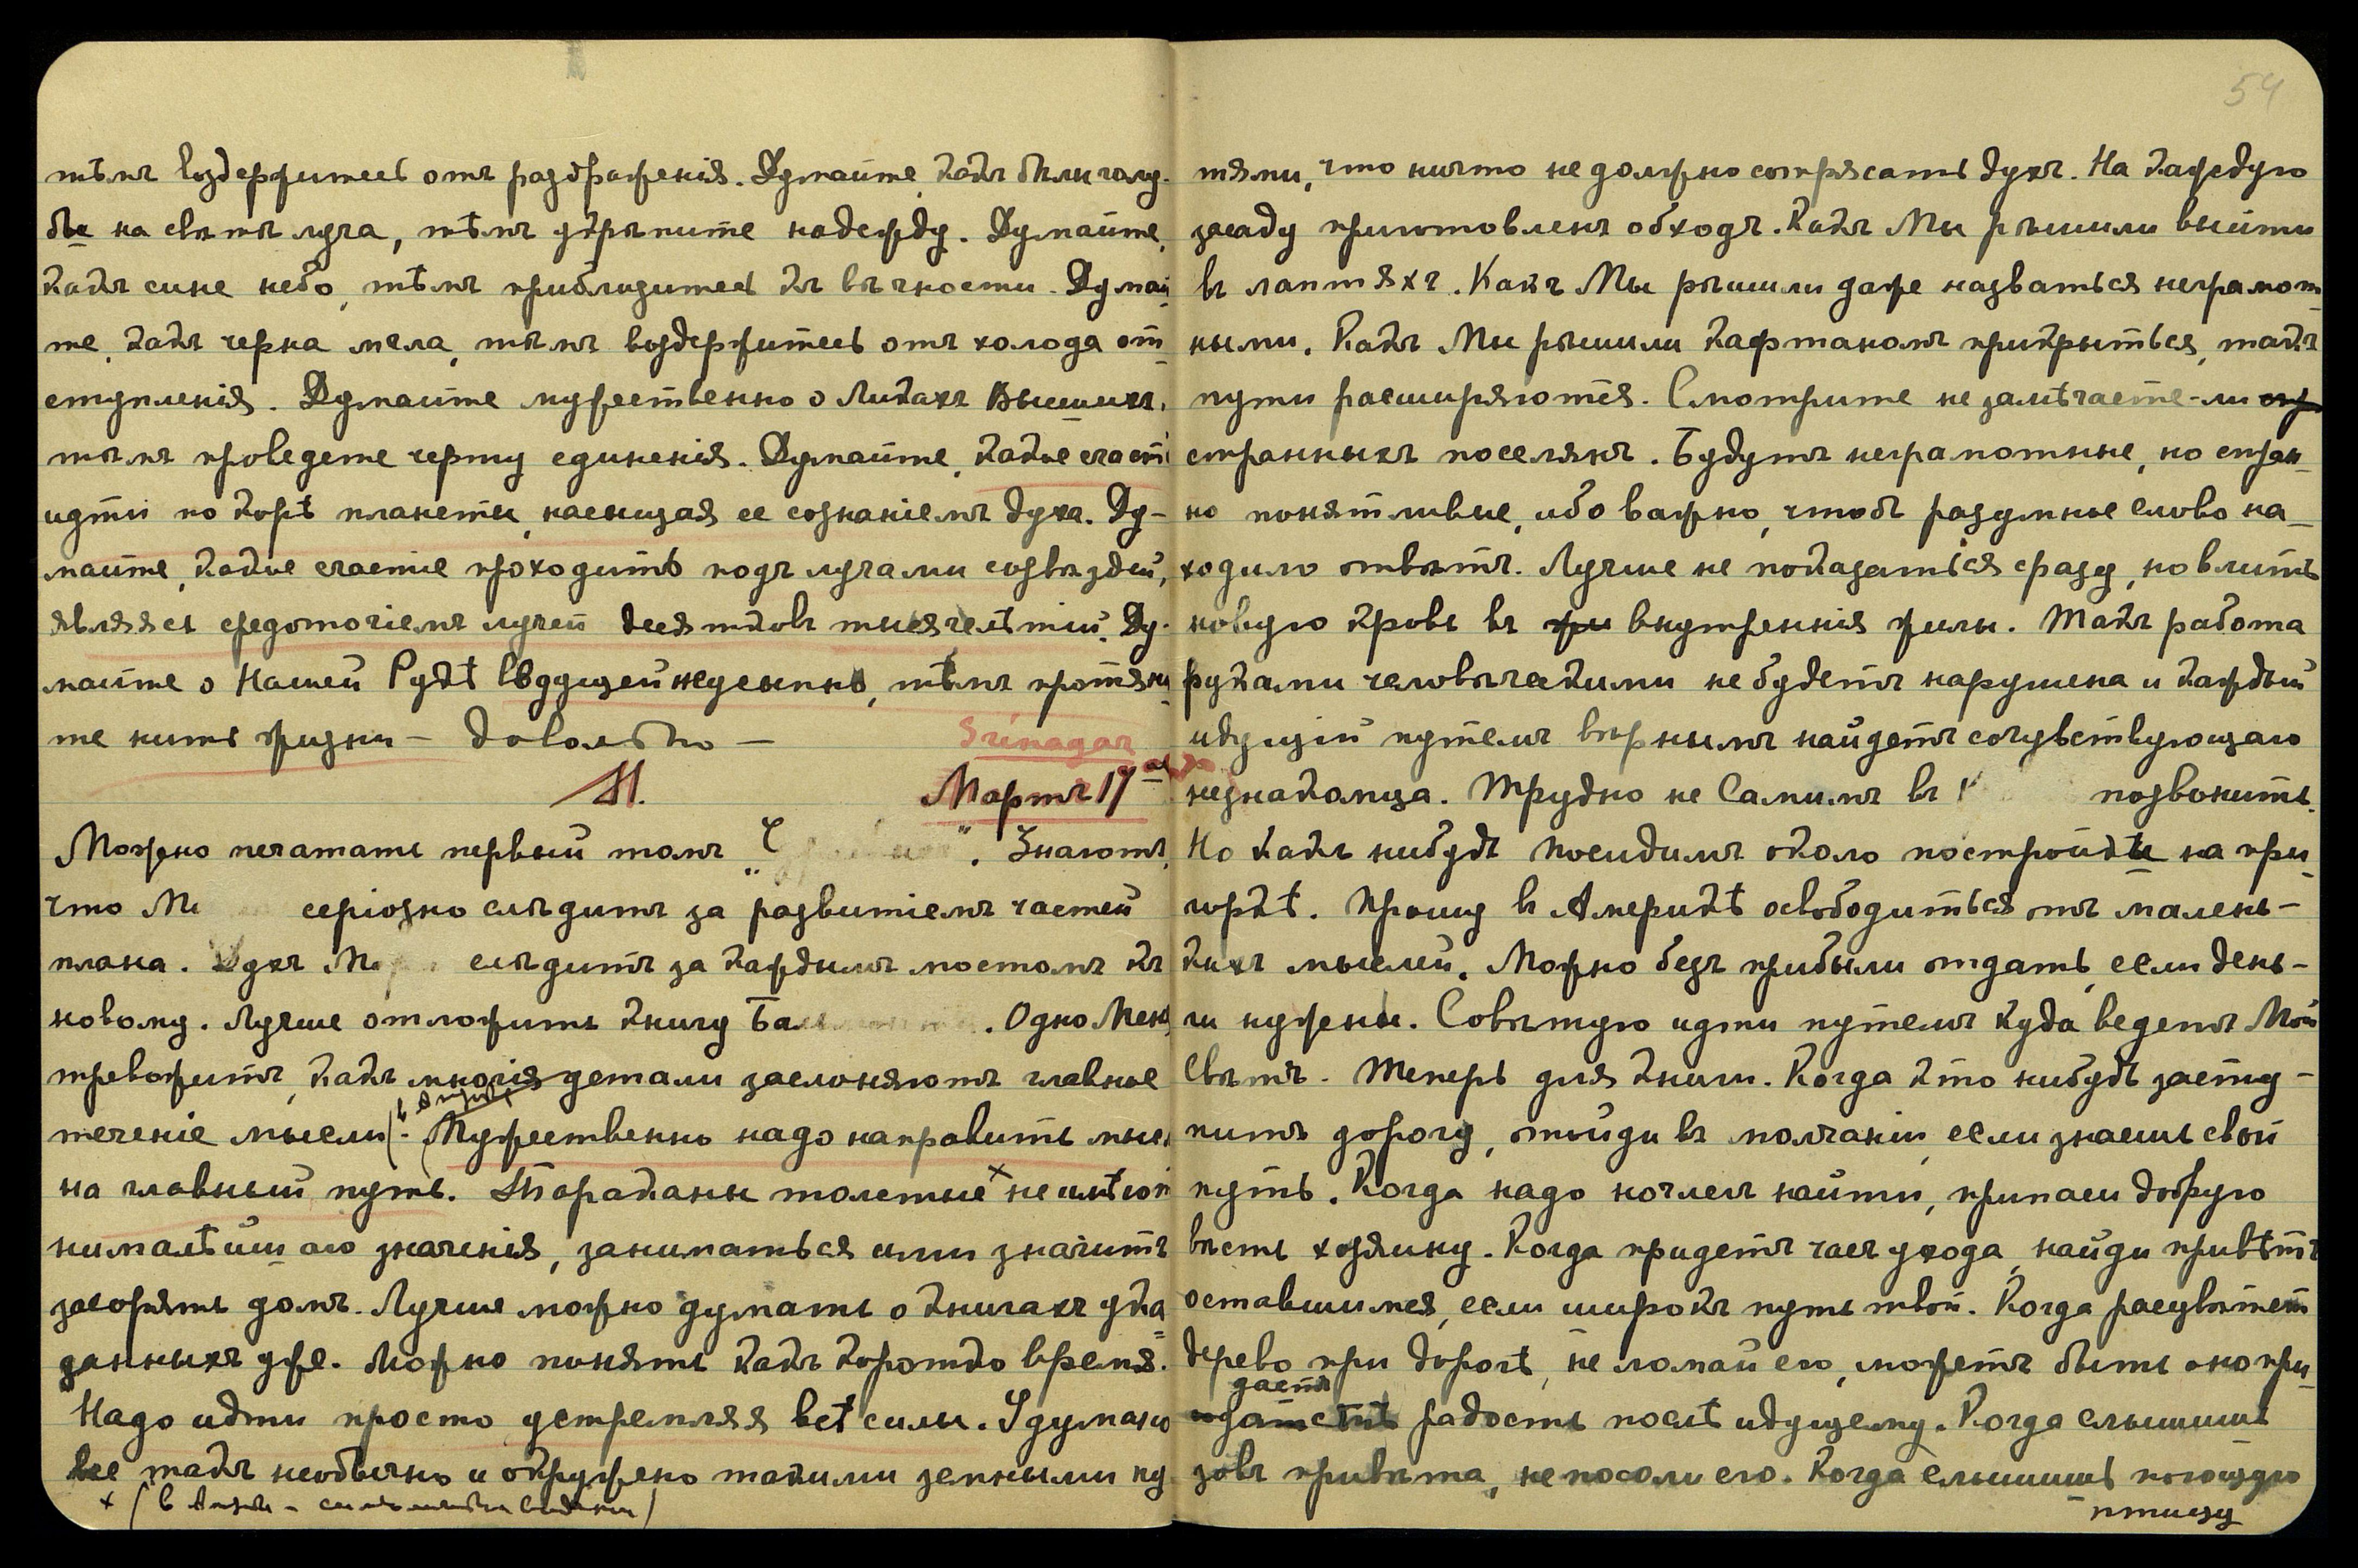 тѣмъ воздержитесь отъ раздраженія. Думайте, какъ были голу-
бы на свѣтѣ луча, тѣмъ укрѣпите надежду. Думайте,
какъ сине небо, тѣмъ приблизитесь къ вѣчности. Думай-
те, какъ черна мгла, тѣмъ воздержитесь отъ холода от-
ступленія. Думайте мужественно о Ликахъ Высшихъ,
тѣмъ проведете черту единенія. Думайте, какое счастье
идти по корѣ планеты, насыщая ее сознаніемъ духа. Ду-
майте, какое счастіе проходить подъ лучами созвѣздій,
являясь средоточіемъ лучей десятковъ тысячелѣтій. Ду-
майте о Нашей Рукѣ ведущей неусыпно, тѣмъ протяни-
те нить жизни — довольно —
Srinagar
М. Мартъ 17
Можно печатать первый томъ „ “. Знаютъ,
что М серіозно слѣдитъ за развитіемъ частей
плана. Духъ М слѣдитъ за каждымъ мостомъ къ
новому. Лучше отложить книгу Ба . Одно Меня
тревожитъ, какъ многія детали заслоняютъ главное
теченіе мысли. Мужественно надо направить мысль
на главный путь. Тараканы толстые × не имѣютъ
нималѣйшаго значенія, заниматься ими значитъ
засорять домъ. Лучше можно думать о книгахъ ука-
занныхъ уже. Можно понять какъ коротко время.
Надо идти просто устремляя всѣ силы. Удумано
все такъ необычно и окружено такими земными пу-
× (в
54
тями, что ничто не должно сотрясать духъ. На каждую
засаду приготовленъ обходъ. Какъ Мы рѣшили выйти
въ лаптяхъ. Какъ Мы рѣшили даже назваться неграмот-
ными. Какъ Мы рѣшили кафтаномъ прикрыться, такъ
пути расширяются. Смотрите не замѣчаете-ли
странныхъ поселянъ. Будутъ неграмотные, но стран-
но понятливые, ибо важно, чтобъ разумное слово на-
ходило отвѣтъ. Лучше не показаться сразу, но влить
новую кровь въ внутреннія жилы. Такъ работа
руками человѣческими не будетъ нарушена и каждый
идущій путемъ вѣрнымъ найдетъ сочувствующаго
незнакомца. Трудно не Самимъ въ позвонить.
Но какъ нибудь посидимъ около постройки на при-
горкѣ. Прошу въ Америкѣ освободиться отъ малень-
кихъ мыслей. Можно безъ прибыли отдать, если день-
ги нужны. Совѣтую идти путемъ куда ведетъ Мой
Свѣтъ. Теперь для книги. Когда кто нибудь засту-
питъ дорогу, отойди въ молчаніи, если знаешь свой
путь. Когда надо ночлегъ найти, припаси добрую
вѣсть хозяину. Когда придетъ часъ ухода, найди привѣтъ
оставшимся, если широкъ путь твой. Когда расцвѣтетъ
дерево при дорогѣ, не ломай его, можетъ быть оно при-
дастъ
радость послѣ идущему. Когда слышишь
зовъ привѣта, не посоли его. Когда слышишь поющую
птицу